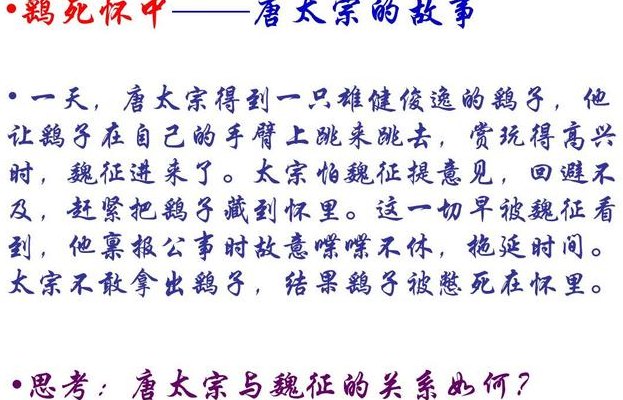 •鹞死怀中——唐太宗的故事
•一天，唐太宗得到一只雄健俊逸的鹞子，他
让鹞子在自己的手臂上跳来跳去，赏玩得高兴
时，魏征进来了。太宗怕魏征提意见，回避不
及，赶紧把鹞子藏到怀里。这一切早被魏征看
到，他禀报公事时故意喋喋不休，拖延时间。
太宗不敢拿出鹞子，结果鹞子被憋死在怀里。
•思考：唐太宗与魏征的关系如何？